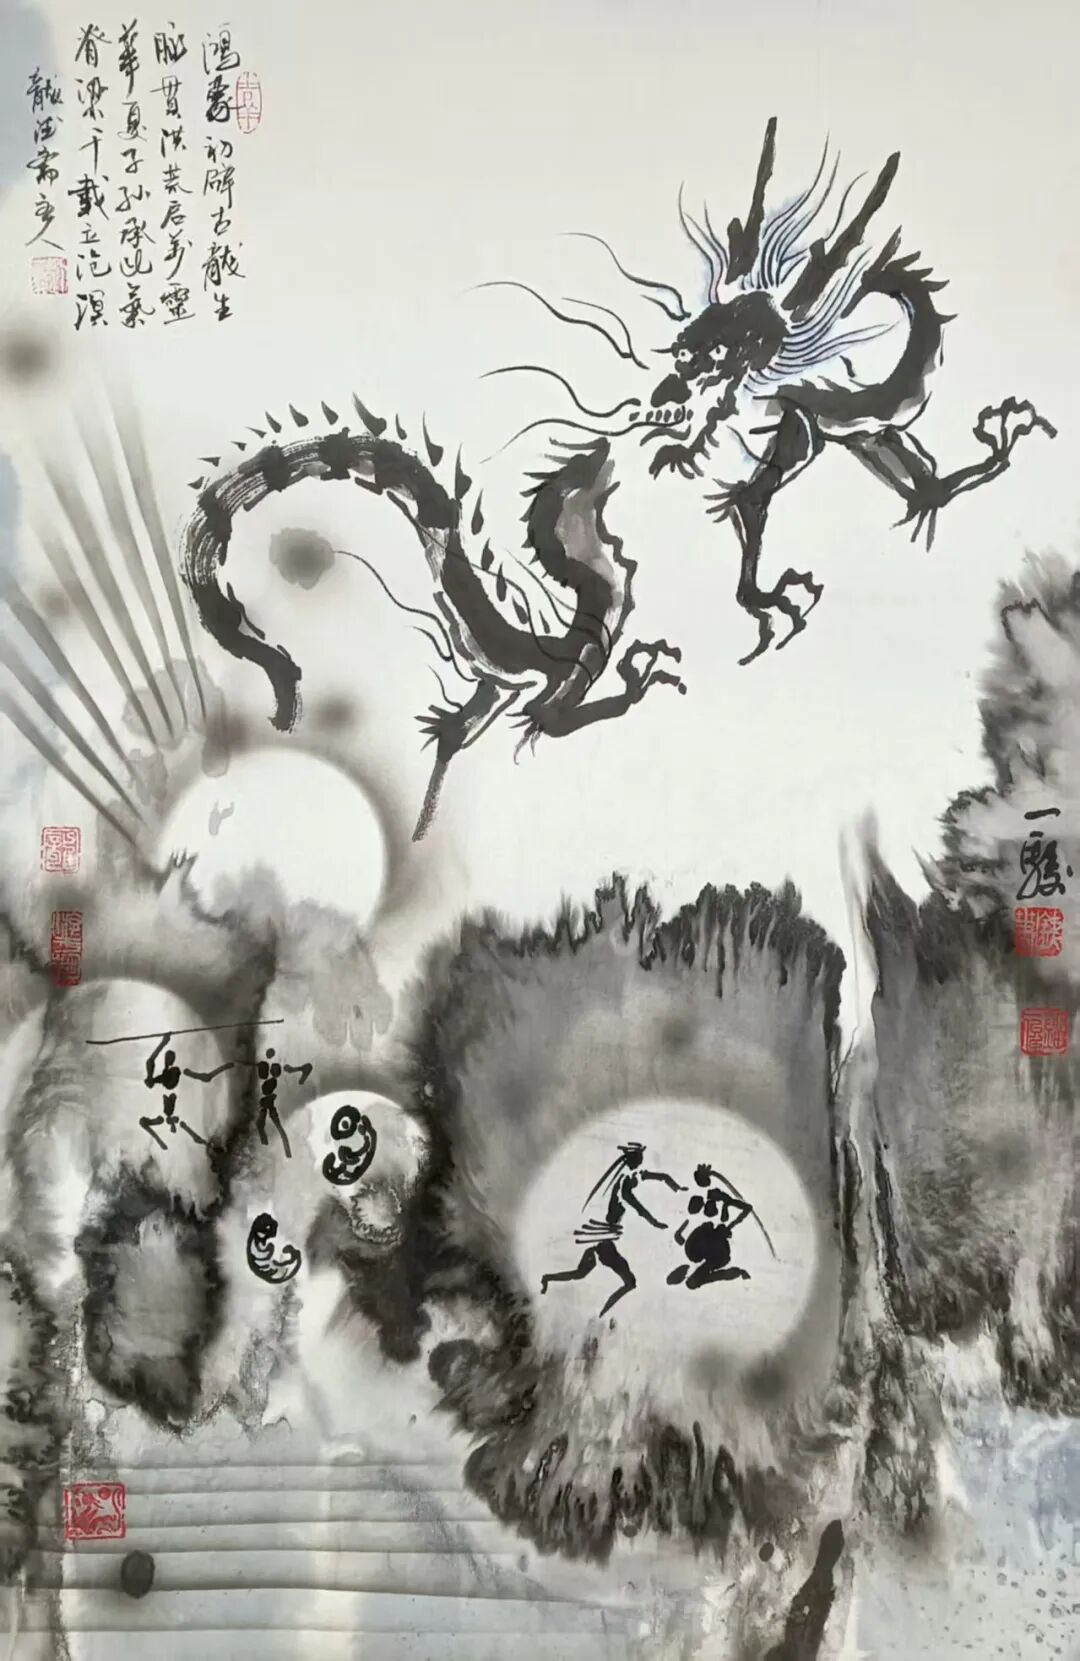 鴻蒙初辟古龍生
脈貫洪荒启萬靈
華夏子孙承此氣
脊梁千載立滄溟
龍
主人
一駿